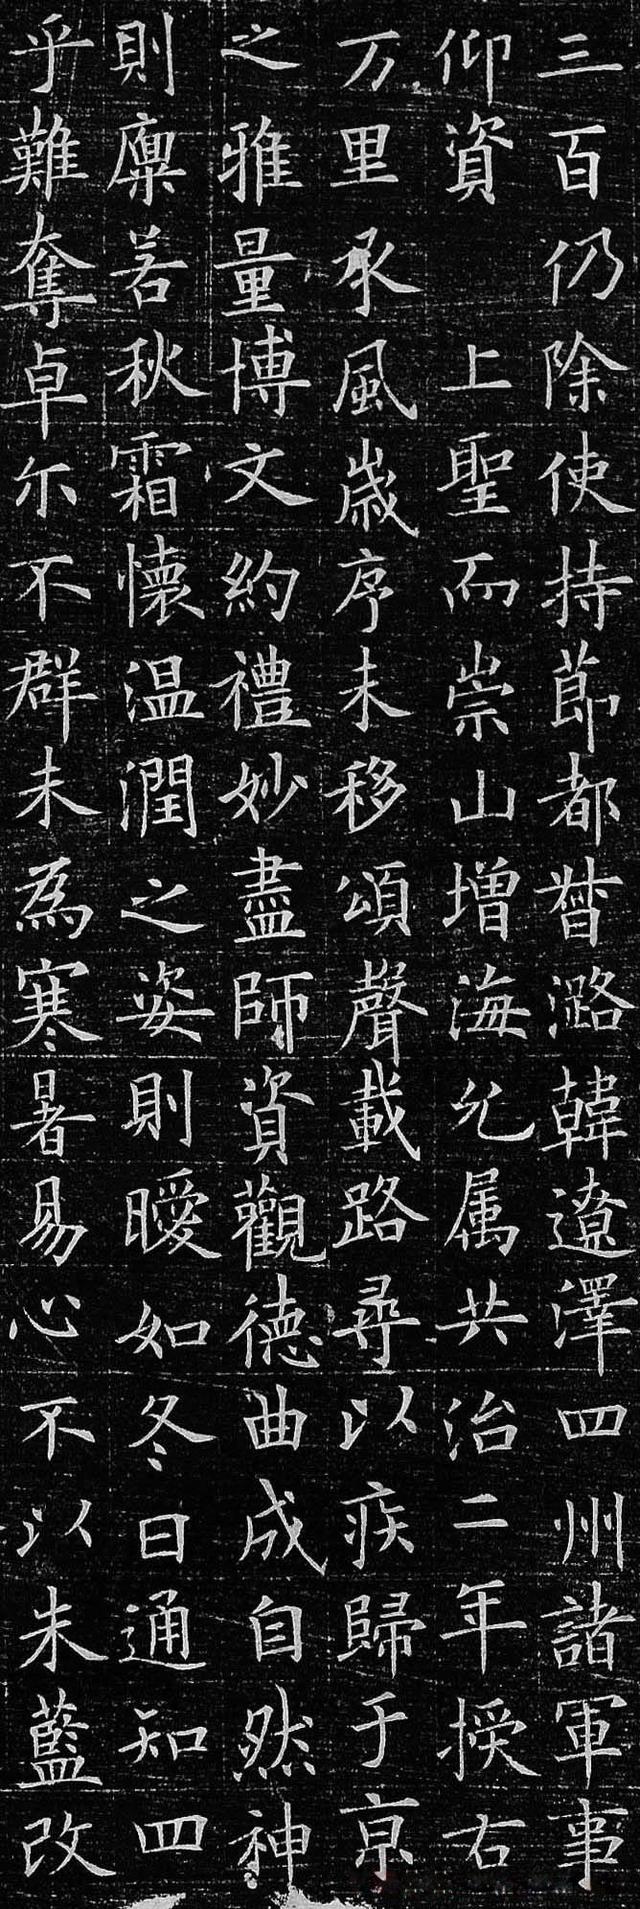 三百仍除使持莭都督潞韓遼澤四州諸軍事
仰資 上聖而崇山增海允属共治二年授右
万里承風歲序未移頌聲載路尋以疾歸于京
之雅量博文約禮妙盡師資觀德曲成自然神
則廩若秋霜懷温潤之姿則曖如冬日通知四
乎難奪卓尓不群未為寒暑易心不以朱藍改